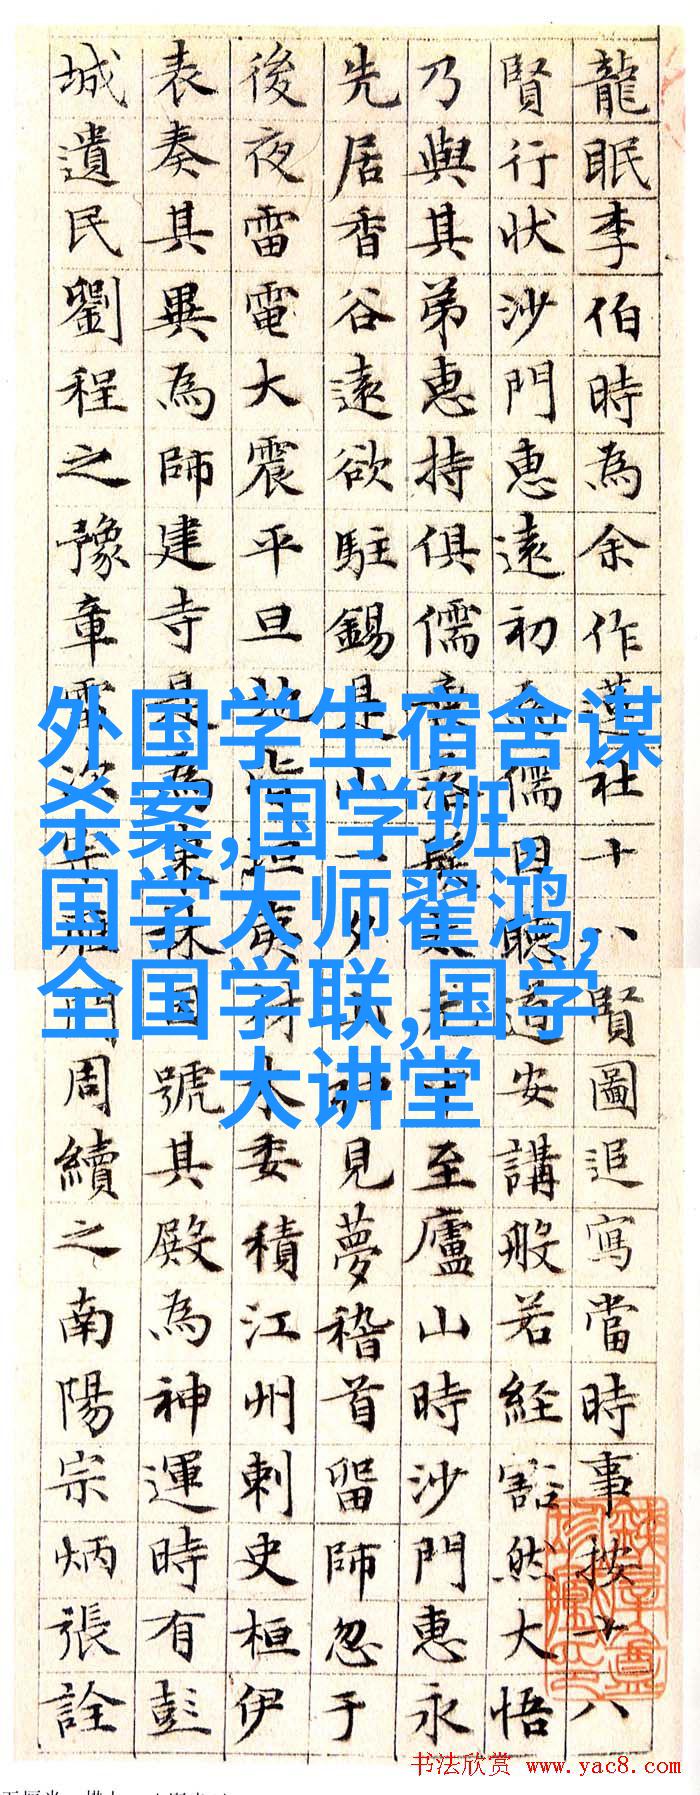 龍眠李伯時為余作蓮社十八賢圖追寫當時事按十八
賢行狀沙門惠遠初為儒因聽道安講般若經豁然大悟
乃與其弟惠持俱儒落髮至廬山時沙門惠永
先居香谷遠欲駐錫是山一夕山神見夢稽首留師忽于
後夜雷電大震平旦地皆坦夷材木委積江州刺史桓伊
表奏其異為師建寺是為東林因號其殿為神運時有彭
城遺民劉程之豫章雷次宗雁門周續之南陽宗炳張詮
外国学生宿舍谋
杀案,国学班,
国学大师翟鸿,
全国学联,国学
大讲堂
书法欣赏 www.yac8.com